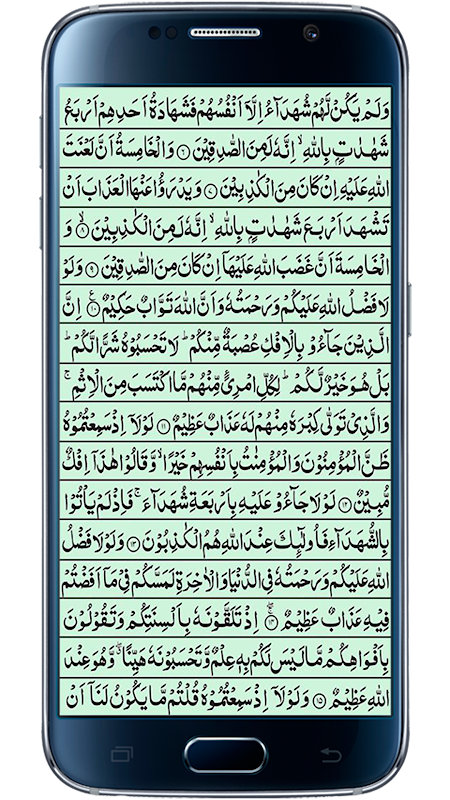 وَلَمْ يَكُنْ لَّهُمْ شُهَدَآءُ اِلَّاۤ اَنْفُسُهُمْ فَشَهَادَةُ اَحَدِهِمْ اَرْبَعُ
شَهٰدٰتٍۭ بِاللهِ ۙ اِنَّهٗ لَمِنَ الصّٰدِقِيْنَ ۝۶ وَالْخَامِسَةُ اَنَّ لَعْنَتَ
اللهِ عَلَيْهِ اِنْ كَانَ مِنَ الْكٰذِبِيْنَ ۝۷ وَيَدْرَؤُا عَنْهَا الْعَذَابَ اَنْ
تَشْهَدَ اَرْبَعَ شَهٰدٰتٍۭ بِاللهِ ۙ اِنَّهٗ لَمِنَ الْكٰذِبِيْنَ ۝۸ وَ
الْخَامِسَةَ اَنَّ غَضَبَ اللهِ عَلَيْهَاۤ اِنْ كَانَ مِنَ الصّٰدِقِيْنَ ۝۹ وَلَوْ
لَا فَضْلُ اللهِ عَلَيْكُمْ وَرَحْمَتُهٗ وَاَنَّ اللهَ تَوَّابٌ حَكِيْمٌ ۝۱۰ اِنَّ
الَّذِيْنَ جَآءُوْ بِالْاِفْكِ عُصْبَةٌ مِّنْكُمْ ؕ لَا تَحْسَبُوْهُ شَرًّا لَّكُمْ ؕ
بَلْ هُوَ خَيْرٌ لَّكُمْ ؕ لِكُلِّ امْرِئٍ مِّنْهُمْ مَّا اكْتَسَبَ مِنَ الْاِثْمِ ۚ
وَالَّذِيْ تَوَلّٰى كِبْرَهٗ مِنْهُمْ لَهٗ عَذَابٌ عَظِيْمٌ ۝۱۱ لَوْلَاۤ اِذْ سَمِعْتُمُوْهُ
ظَنَّ الْمُؤْمِنُوْنَ وَالْمُؤْمِنٰتُ بِاَنْفُسِهِمْ خَيْرًا ۙ وَّقَالُوْا هٰذَاۤ اِفْكٌ
مُّبِيْنٌ ۝۱۲ لَوْلَا جَآءُوْ عَلَيْهِ بِاَرْبَعَةِ شُهَدَآءَ ۚ فَاِذْ لَمْ يَاْتُوْا
بِالشُّهَدَآءِ فَاُولٰٓئِكَ عِنْدَ اللهِ هُمُ الْكٰذِبُوْنَ ۝۱۳ وَلَوْلَا فَضْلُ
اللهِ عَلَيْكُمْ وَرَحْمَتُهٗ فِى الدُّنْيَا وَالْاٰخِرَةِ لَمَسَّكُمْ فِيْ مَاۤ اَفَضْتُمْ
فِيْهِ عَذَابٌ عَظِيْمٌ ۝۱۴ اِذْ تَلَقَّوْنَهٗ بِاَلْسِنَتِكُمْ وَتَقُوْلُوْنَ
بِاَفْوَاهِكُمْ مَّا لَيْسَ لَكُمْ بِهٖ عِلْمٌ وَّتَحْسَبُوْنَهٗ هَيِّنًا ۖ وَّهُوَ عِنْدَ
اللهِ عَظِيْمٌ ۝۱۵ وَلَوْلَاۤ اِذْ سَمِعْتُمُوْهُ قُلْتُمْ مَّا يَكُوْنُ لَنَاۤ اَنْ